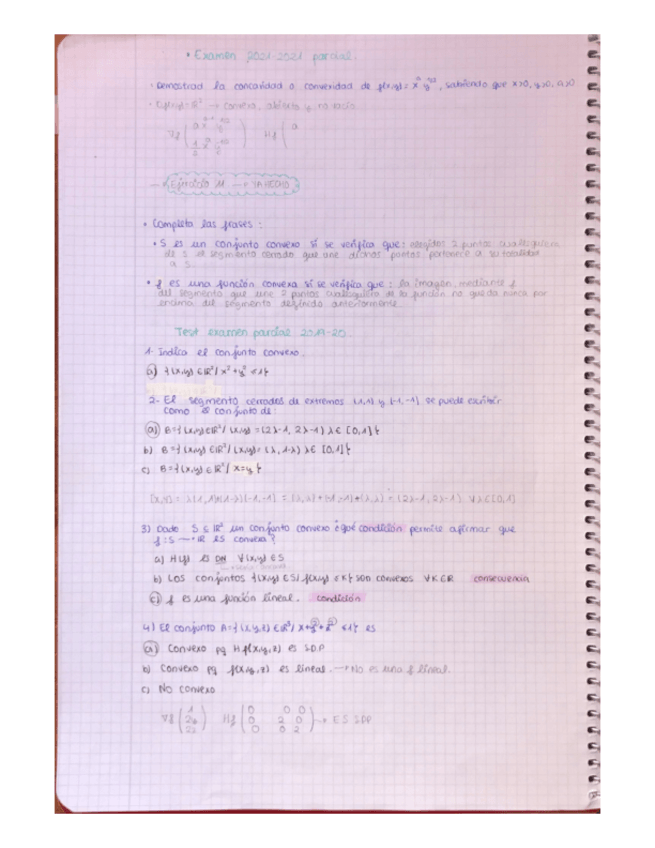 • Examen 2021-2021 parcial.
· Demostrad la concavidad o convexidad de f(x,y)= x^a y^1/2, sabiendo que x>0, y>0, a>0
→ convexo, abierto y no vacío
∇f ( ) Hf ( a
→ Ejercicio 11 → YA HECHO
• Completa las frases :
• S es un conjunto convexo si se verifica que: elegidos 2 puntos cualesquiera
de S el segmento cerrado que une dichos puntos pertenece a su totalidad
a S.
• f es una función convexa si se verifica que : la imagen mediante f
del segmento que une 2 puntos cualesquiera de la función no queda nunca por
encima del segmento definido anteriormente.
Test examen parcial 2019-20.
1- Indica el conjunto convexo.
a) {(x,y) ∈ℝ²/ x²+y² ≤1}
2- El segmento cerrados de extremos (1,1) y (-1,-1) se puede escribir
como el conjunto de:
a) B={(x,y)∈ℝ²/ (x,y) =(2λ-1, 2λ-1) λ∈ [0,1]}
b) B={(x,y)∈ℝ²/ (x,y)= (λ, 1-λ) λ∈ [0,1]}
c) B={(x,y)∈ℝ²/ x=y}
(x,y)= λ(1,1)+(1-λ)(-1,-1) = (λ,λ)+(-1+λ,-1+λ) = (2λ-1, 2λ-1). ∀λ∈[0,1]
3) Dado S ⊆ ℝ² un conjunto convexo ¿qué condición permite afirmar que
f:S → ℝ es convexa?
a) Hf(x) es DN ∀(x,y) ∈S
b) Los conjuntos {(x,y) ∈S/ f(x,y) ≤K} son convexos ∀K∈ℝ consecuencia
c) f es una función lineal. condición
4) El conjunto A={(x,y,z) ∈ℝ³/ x+y²+z² ≤1} es
a) Convexo pq Hf(x,y,z) es SDP
b) Convexo pq f(x,y,z) es lineal. → No es una f lineal.
c) No convexo
∇f ( 1 ) Hf ( 0 0 0 )
( 2y ) ( 0 2 0 ) → ES SDP
( 2z ) ( 0 0 2 )